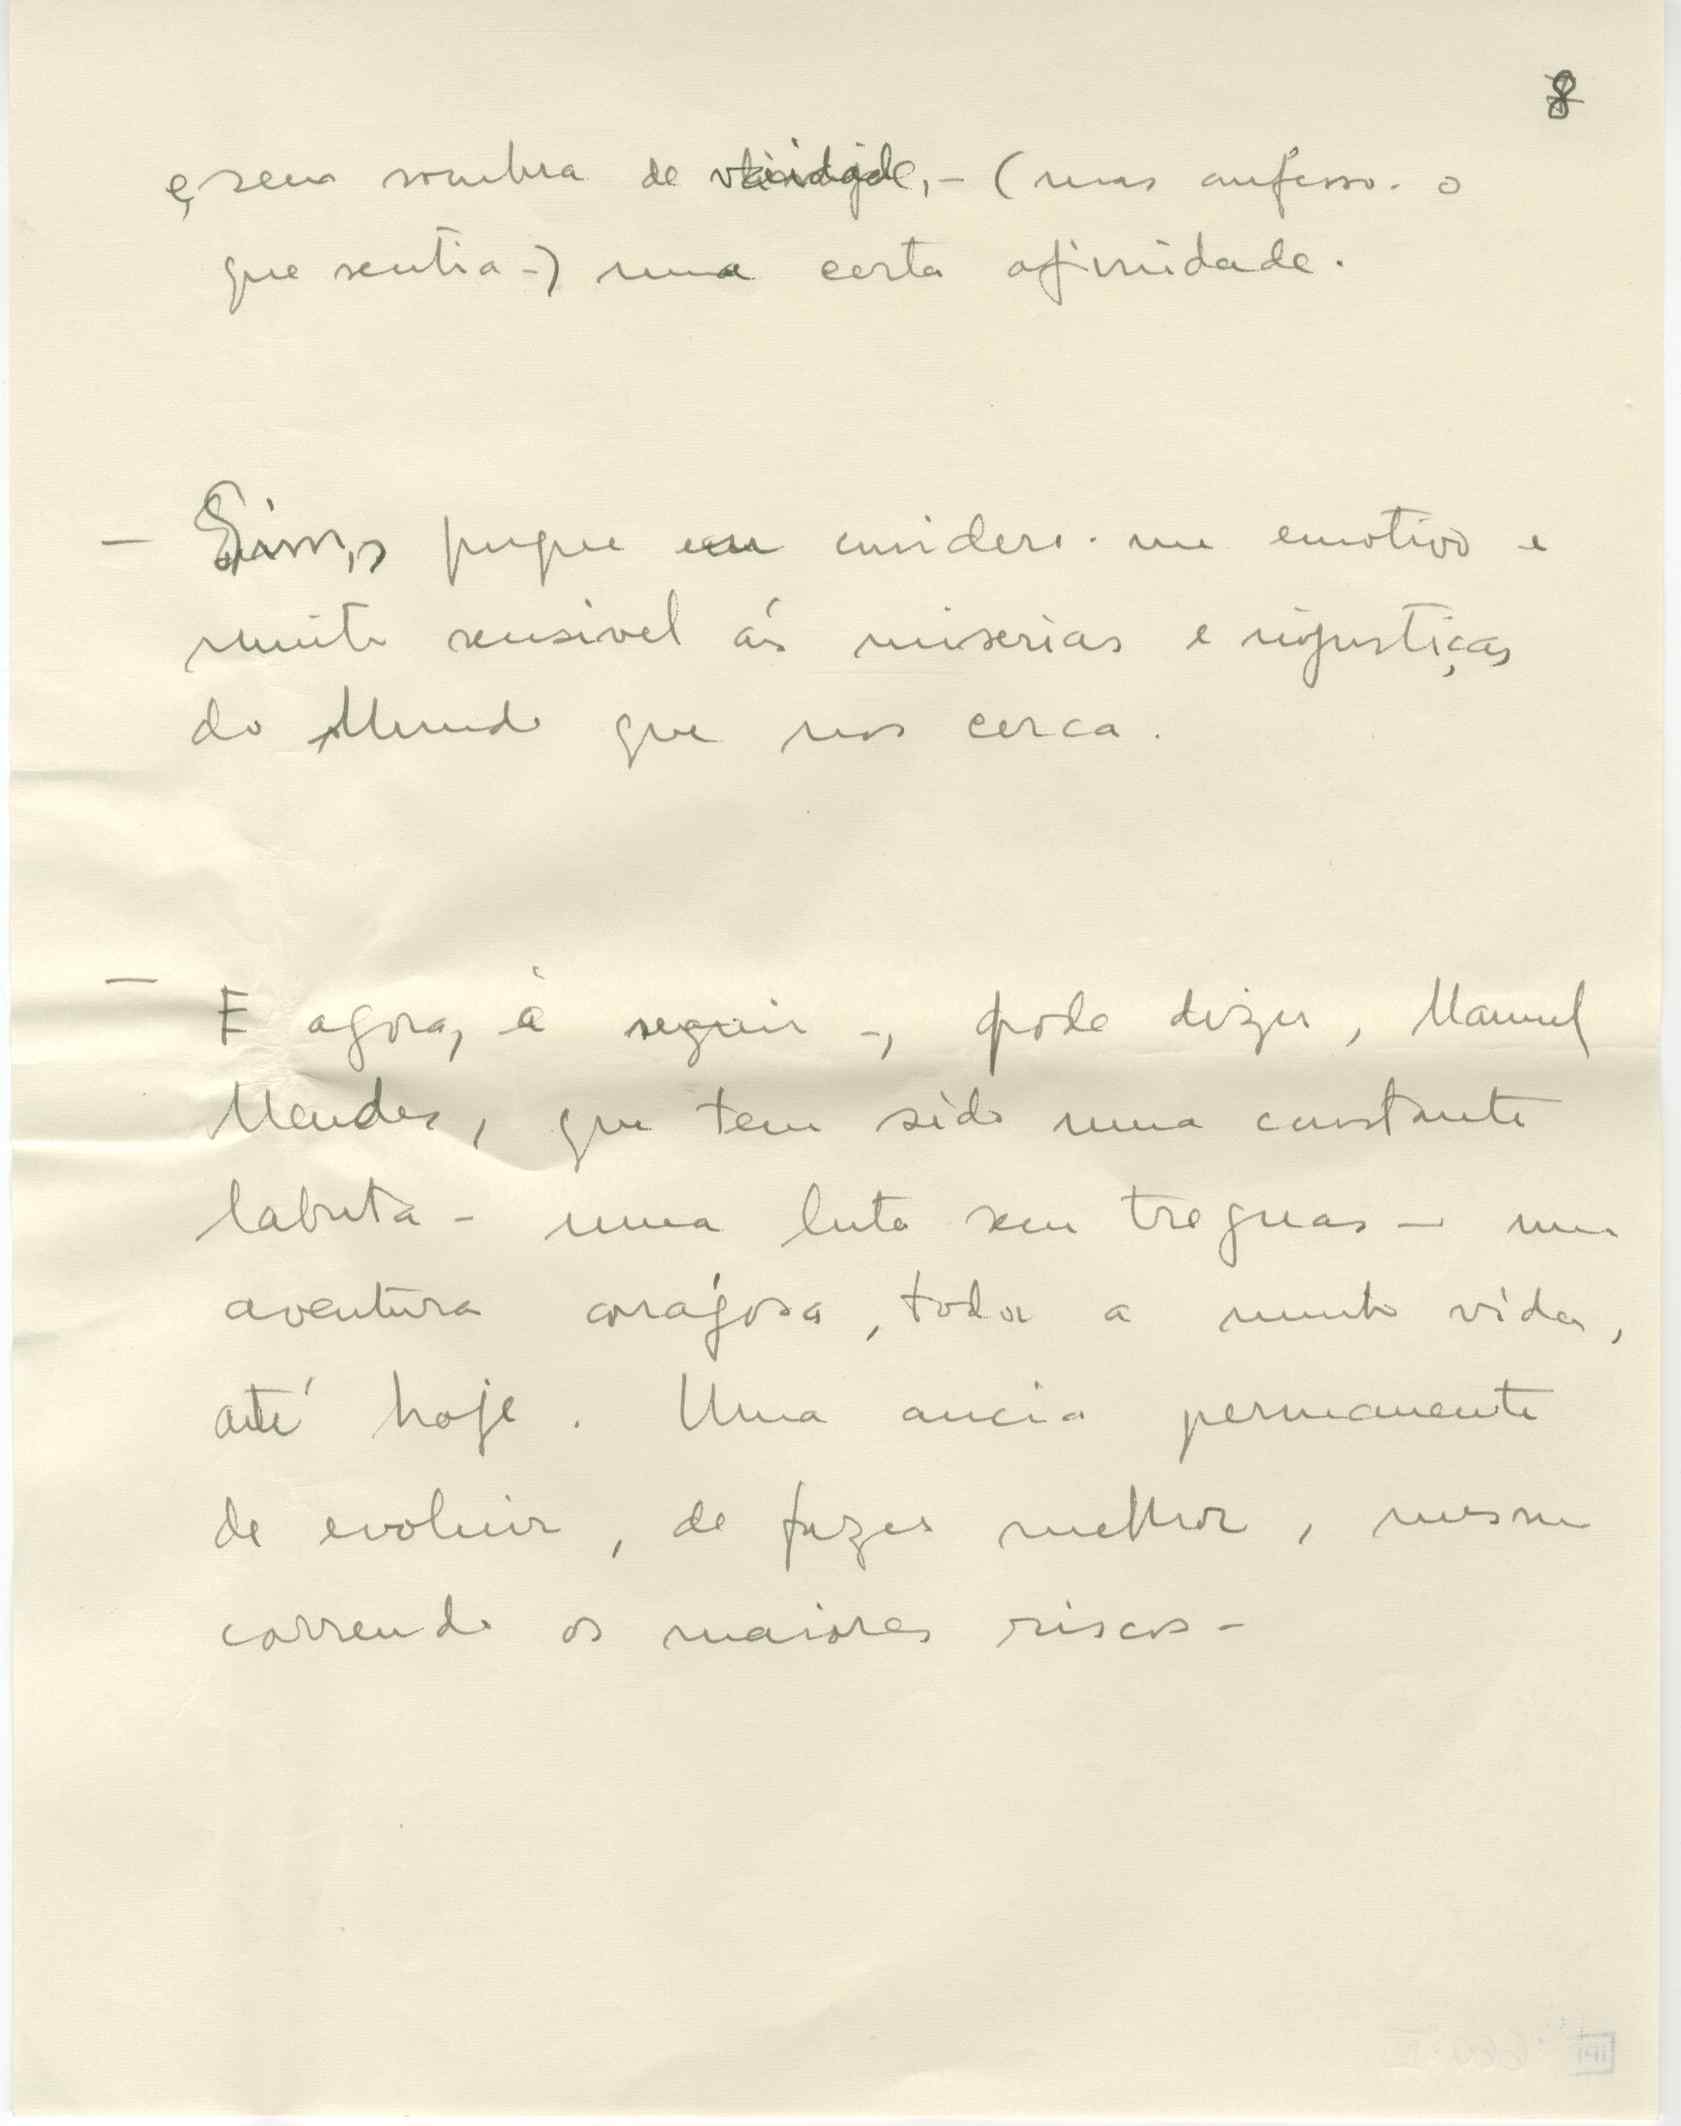 8
e, sem sombra de vaidade, - (mas confesso-o
que sentia -) uma certa afinidade.
— Sim, porque eu considero-me emotivo e
muito sensivel ás miserias e injustiças
do Mundo que nos cerca.
— E agora, á seguir -, póde dizer, Manuel
Mendes, que tem sido uma constante
labuta - uma luta sem treguas - uma
aventura corajosa, toda a minha vida,
até hoje. Uma ancia permanente
de evoluir, de fazer melhor, mesmo
correndo os maiores riscos -